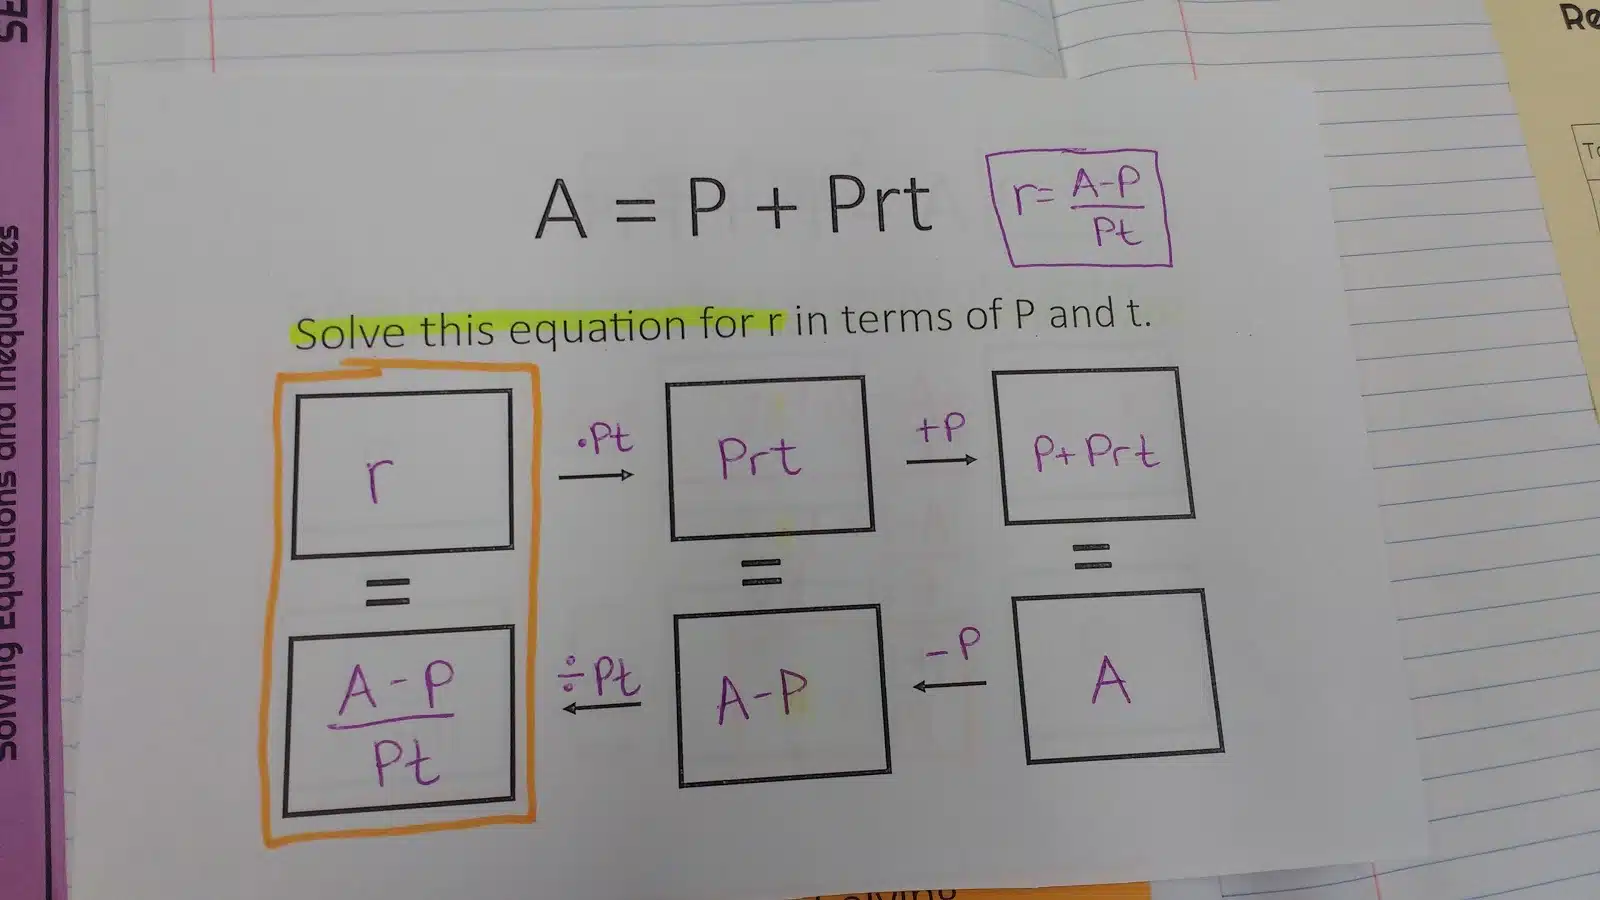 A = P + Prt
r = A-P / Pt
Solve this equation for r in terms of P and t.
r
·Pt
Prt
+P
P+Prt
=
=
=
A-P / Pt
÷Pt
A-P
-P
A
Solving Equations and Inequalities
Re